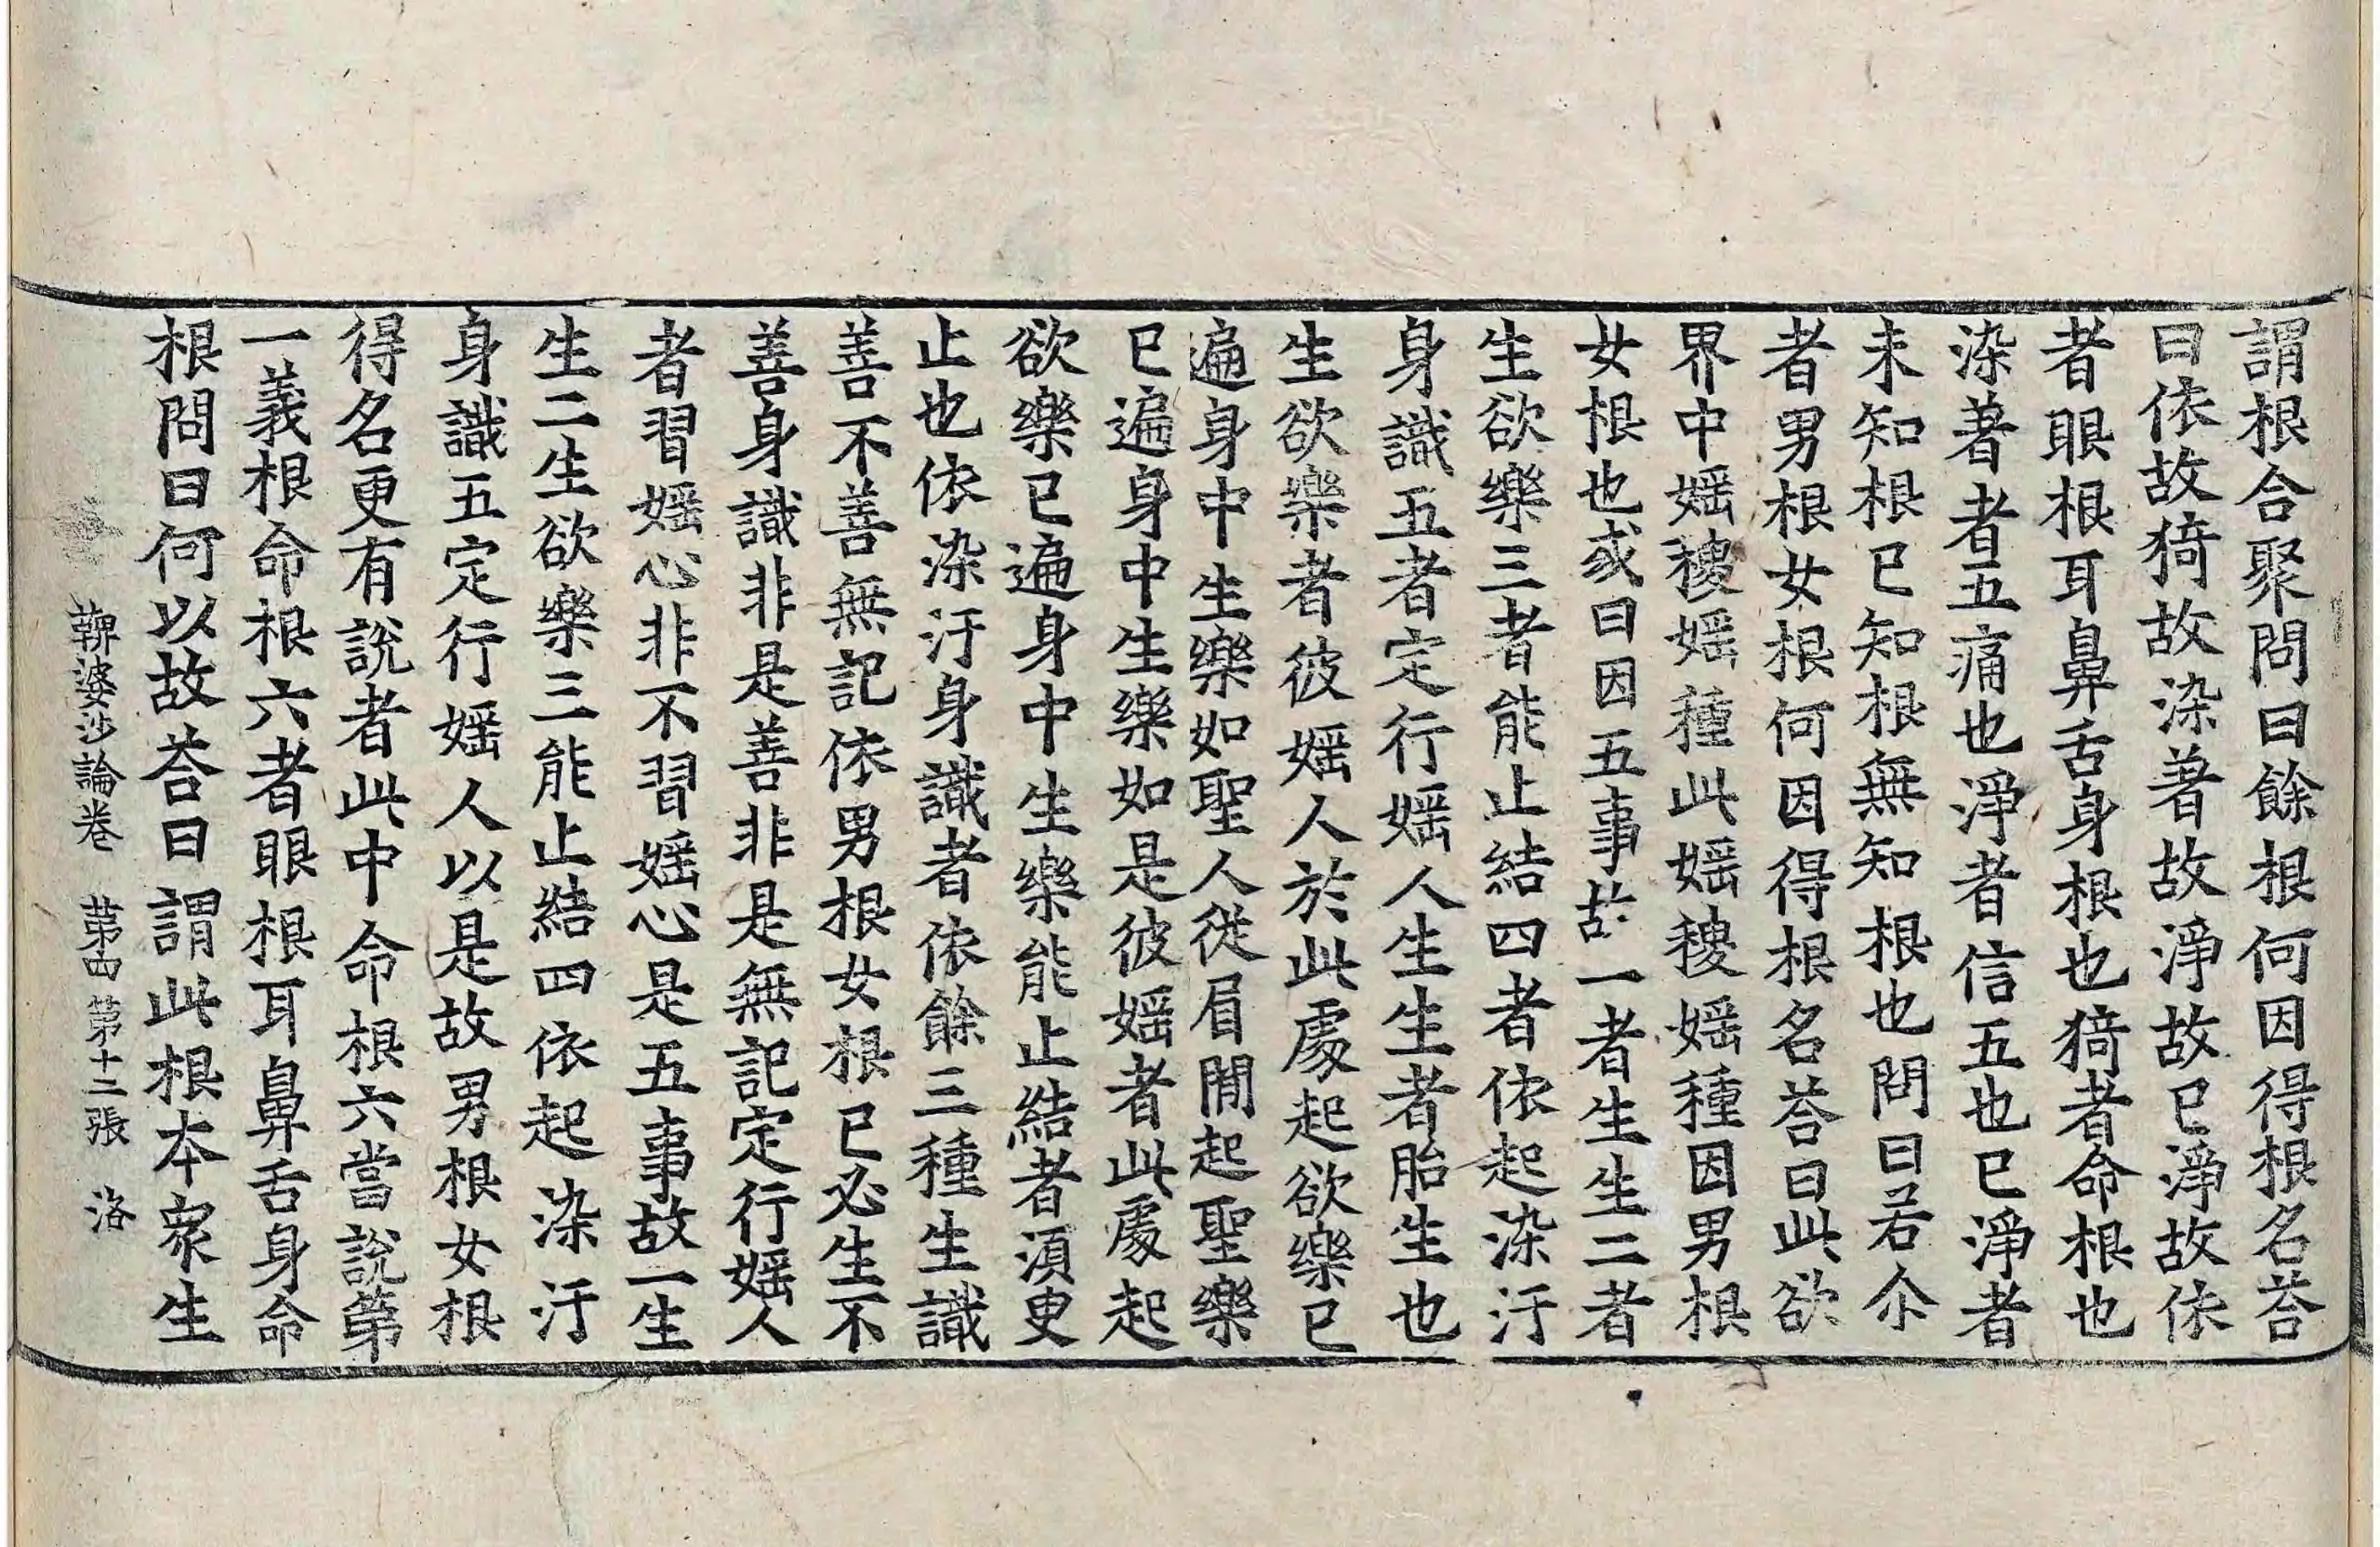 謂根合聚問曰餘根何因得根名荅
曰依故猗故染著故淨故已淨故依
者眼根耳鼻舌身根也猗者命根也
染著者五痛也淨者信五也已淨者
未知根已知根無知根也問曰若尒
者男根女根何因得根名荅曰此欲
界中婬稷婬種此婬稷婬種因男根
女根也或曰因五事故一者生生二者
生欲樂三者能止結四者依起染汙
身識五者定行婬人生生者胎生也
生欲樂者彼婬人於此處起欲樂已
遍身中生樂如聖人從眉閒起聖樂
已遍身中生樂如是彼婬者此處起
欲樂已遍身中生樂能止結者須臾
止也依染汙身識者依餘三種生識
善不善無記依男根女根已必生不
善身識非是善非是無記定行婬人
者習婬心非不習婬心是五事故一生
生二生欲樂三能止結四依起染汙
身識五定行婬人以是故男根女根
得名更有說者此中命根六當說第
一義根命根六者眼根耳鼻舌身命
根問曰何以故荅曰謂此根本衆生
鞞婆沙論卷 第四 第十二張 洛